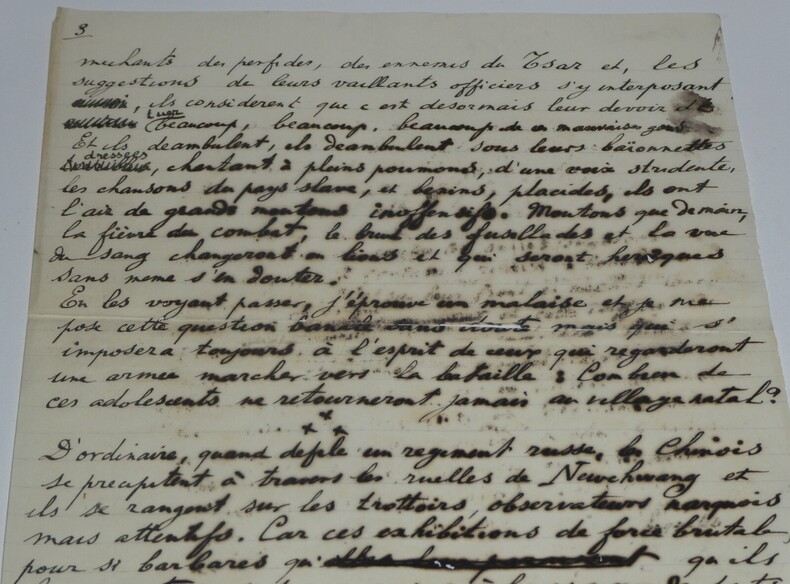 3
mechants des perfides, des ennemis du Tsar et, les
suggestions de leurs vaillants officiers s'y interposant
, ils considerent que c est desormais leur devoir
tuer
beaucoup, beaucoup, beaucoup de ces mauvaises gens
Et ils deambulent, ils deambulent sous leurs baïonnettes
dressees
, chantant à pleins poumons, d'une voix stridente,
les chansons du pays slave, et benins, placides, ils ont
l'air de grands moutons inoffensifs. Moutons que demain,
la fièvre du combat, le bruit des fusillades et la vue
du sang changeront en lions et qui seront heroïques
sans meme s'en douter.
En les voyant passer, j'éprouve un malaise et je me
pose cette question banale sans doute mais qui s'
imposera toujours à l'esprit de ceux qui regarderont
une armee marcher vers la bataille : Combien de
ces adolescents ne retourneront jamais au village natal?
D'ordinaire, quand defile un regiment russe, les Chinois
se precipitent à travers les ruelles de Newchwang et
ils se rangent sur les trottoirs, observateurs narquois
mais attentifs. Car ces exhibitions de force brutale,
pour si barbares qu' qu ils